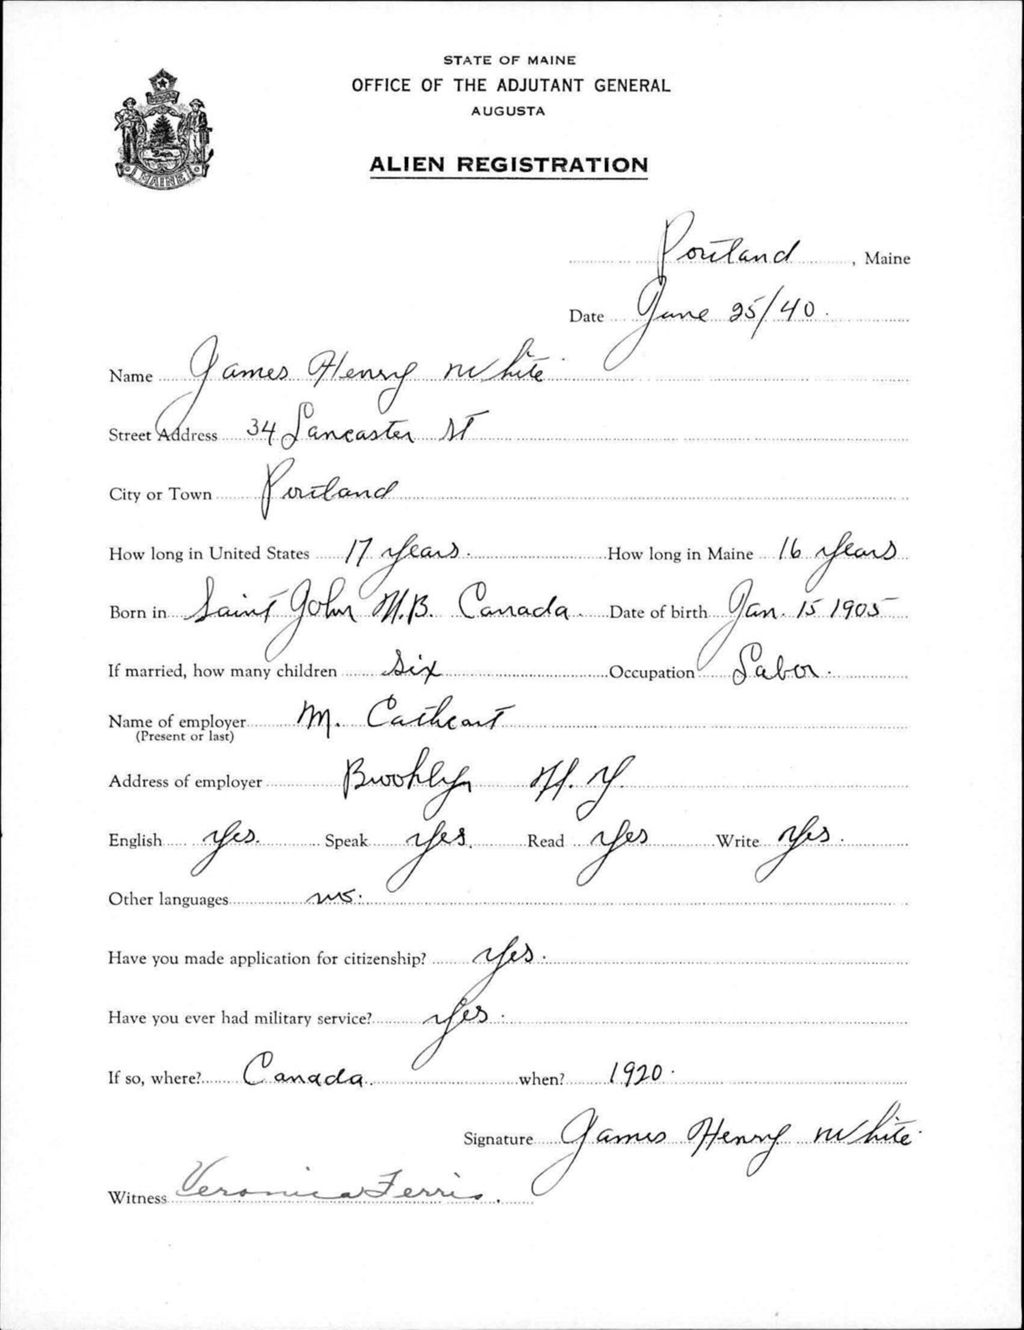 STATE OF MAINE
OFFICE OF THE ADJUTANT GENERAL
AUGUSTA
ALIEN REGISTRATION
MAINE
Portland, Maine
Date June 25/40.
Name James Henry White
Street Address 34 Lancaster St
City or Town Portland
How long in United States 17 years. How long in Maine 16 years
Born in Saint John N.B. Canada. Date of birth Jan. 15 1905
If married, how many children Six Occupation Labor.
Name of employer M. Cathcart
(Present or last)
Address of employer Brooklyn N.Y.
English yes. Speak yes. Read yes Write yes.
Other languages no.
Have you made application for citizenship? yes.
Have you ever had military service? yes.
If so, where? Canada. when? 1920.
Signature James Henry White
Witness Veronica Ferris.